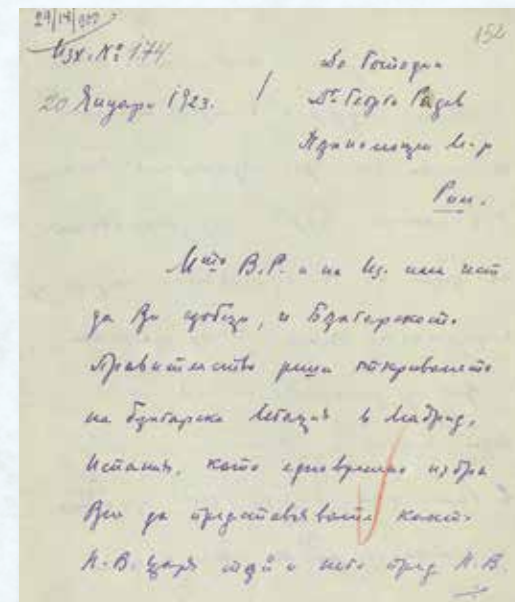 152
Изх. № 174.
20 Януари 1923.
До Господин
Д-р Георги Радев
Пълномощен М-р
Рим.
М-то В.Р. и на Из. има чест
да Ви съобщи, че Българското
Правителство реши откриването
на българска Легация в Мадрид,
Испания, като едновременно избра
Вас да представлявате както
Н.В. Царя тъй и него пред Н.В.